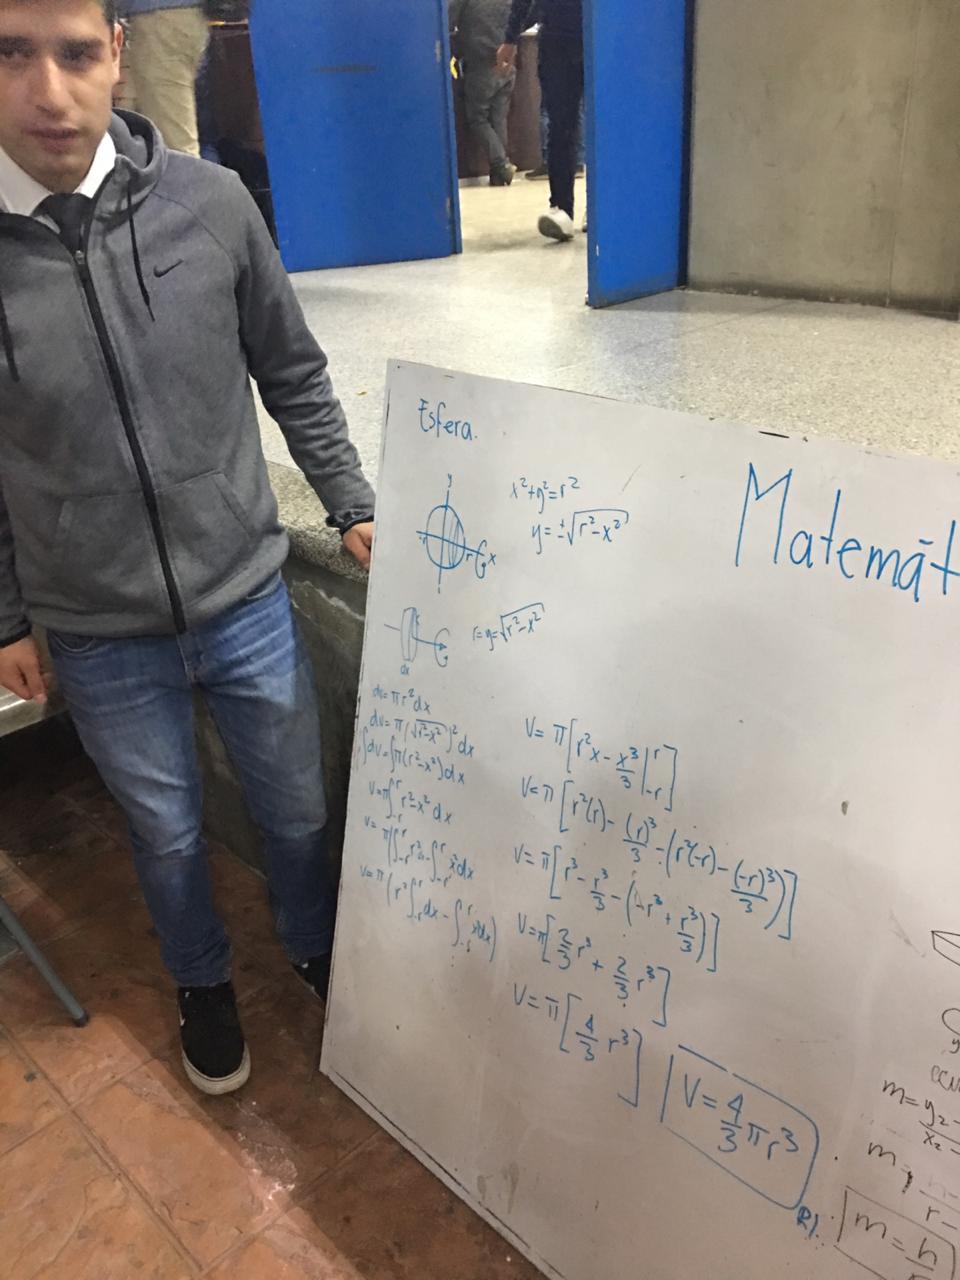 Esfera.
y
x²+y²=r²
y=±√(r²-x²)
-r r x
dx
r=y=√(r²-x²)
dv=πr²dx
dv=π(√(r²-x²))²dx
∫dv=∫π(r²-x²)dx
V=π∫₋ᵣʳ r²-x² dx
V=π(∫₋ᵣʳ r² - ∫₋ᵣʳ x²dx
V=π(r²∫₋ᵣʳ dx - ∫₋ᵣʳ x²dx)
V=π[r²x - x³/3 |₋ᵣʳ]
V=π[r²(r) - (r)³/3 - (r²(-r) - (-r)³/3)]
V=π[r³ - r³/3 - (-r³ + r³/3)]
V=π[2/3 r³ + 2/3 r³]
V=π[4/3 r³]
V=4/3 πr³
R/.
Matemát
y
ecu
m=y₂-
x₂-
m=
r-
m=h